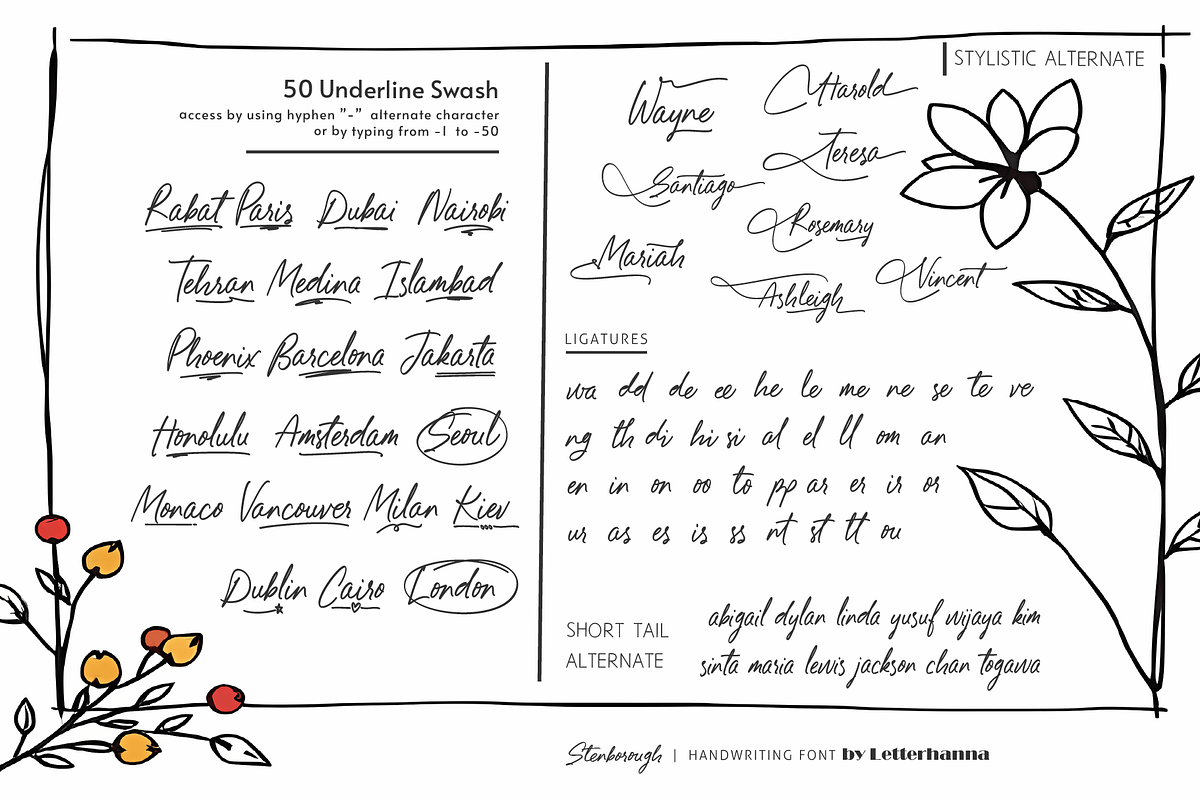 50 Underline Swash
access by using hyphen "-" alternate character
or by typing from -1 to -50
Rabat Paris Dubai Nairobi
Tehran Medina Islambad
Phoenix Barcelona Jakarta
Honolulu Amsterdam Seoul
Monaco Vancouver Milan Kiev
Dublin Cairo London
STYLISTIC ALTERNATE
Wayne Harold
Teresa
Santiago
Rosemary
Mariah
Ashleigh Vincent
LIGATURES
wa dd de ee he le me ne se te ve
ng th di hi si al el ll om an
en in on oo to pp ar er ir or
ur as es is ss nt st tt ou
SHORT TAIL
ALTERNATE
abigail dylan linda yusuf wijaya kim
sinta maria lewis jackson chan togawa
Stenborough | HANDWRITING FONT by Letterhanna